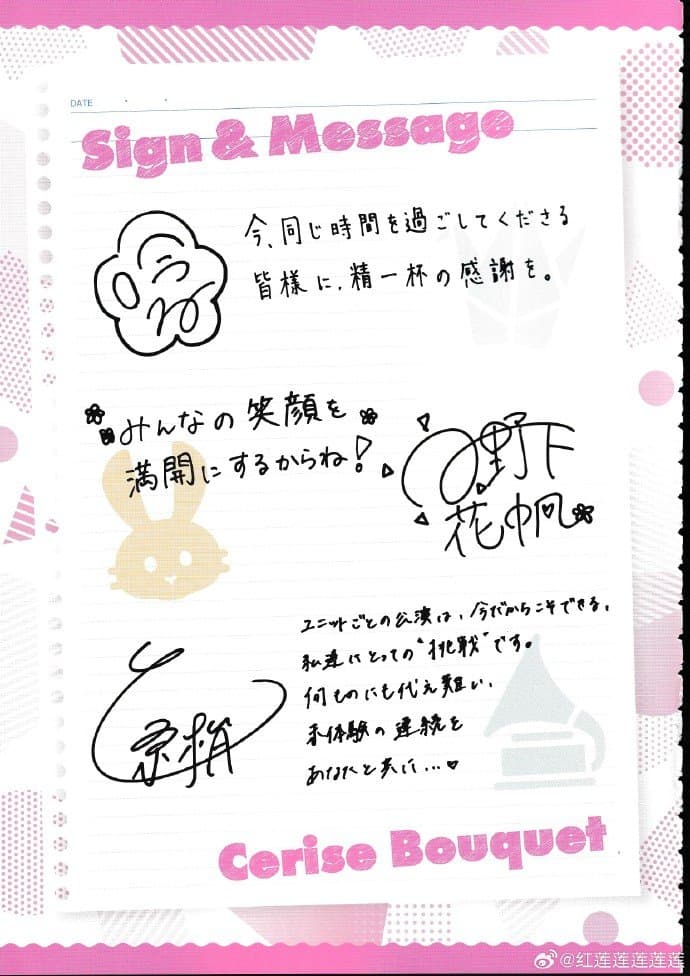 DATE
Sign & Message
今、同じ時間を過ごしてくださる
皆様に、精一杯の感謝を。
みんなの笑顔を
満開にするからね!
野下
花帆
ユニットごとの公演は、今だからこそできる、
私達にとっての"挑戦"です。
何ものにも代え難い、
未体験の連続を
あなたと共に…♥
Cerise Bouquet
@红莲莲莲莲莲